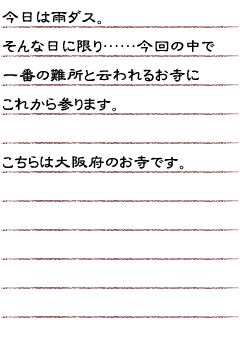 今日は雨ダス。
そんな日に限り……今回の中で
一番の難所と云われるお寺に
これから参ります。
こちらは大阪府のお寺です。